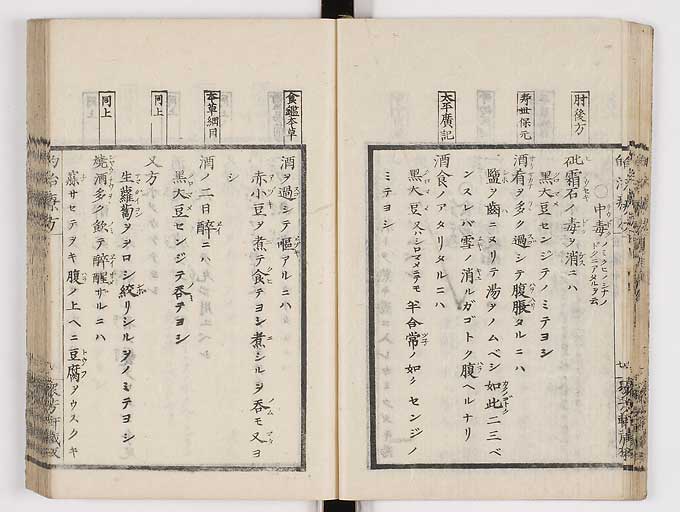 肘後方
○中毒
ノミクヒノシナノ
ドクニアタルヲ云
砒霜石ノ毒ヲ消ニハ
黒大豆センジテノミテヨシ
寿世保元
酒肴ヲ多ク過シテ腹脹タルニハ
塩ヲ歯ニヌリテ湯ヲノムベシ如此二三ベ
ンスレバ雪ノ消ルガゴトク腹ヘルナリ
太平廣記
酒食ノアタリタルニハ
黒大豆又ハシロマメニテモ半合常ノ如クセンジノ
ミテヨシ
食鑑本草
酒ヲ過シテ嘔アルニハ
赤小豆ヲ煮テ食テヨシ煮シルヲ呑モ又ヨ
シ
本草綱目
酒ノ二日醉ニハ
黒大豆センジテ呑テヨシ
同上
又方
生蘿蔔ヲヲロシ絞リシルヲノミテヨシ
同上
焼酒多ノ飲テ醉醒ザルニハ
蘇サセテヲキ腹ノ上ヘニ豆腐ヲウスクキ